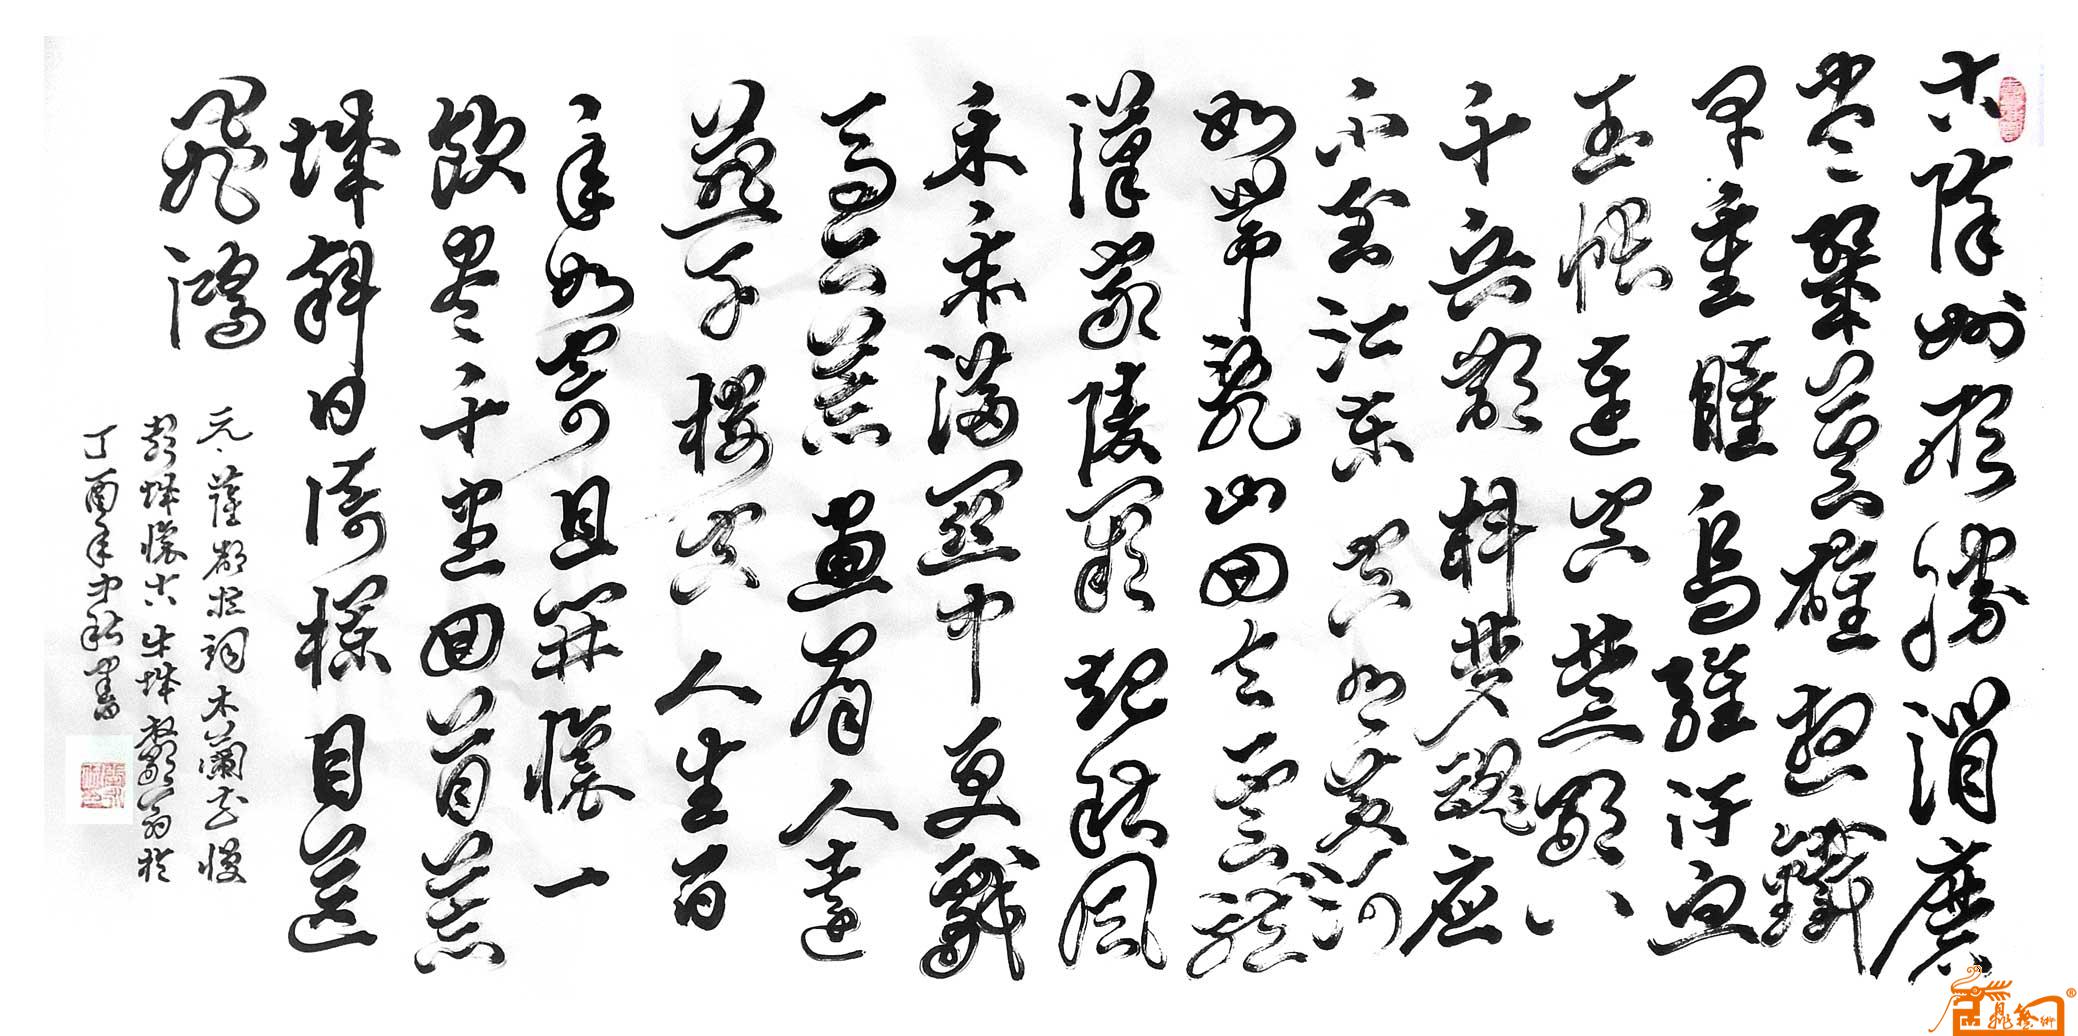 古徐州形勝消磨
尽幾英雄想鐵
甲重瞳烏騅汗血
玉帳連空楚歌八
千兵散料夢魂应
不到江東空有黄河
如帶亂山回合雲龍
漢家陵闕起秋風
禾黍滿關中更戲
馬台荒畫眉人遠
燕子樓空人生百
年如寄且開懷一
飲尽千盅回首荒
城斜日倚欄目送
飛鴻
元薩都拉詞木蘭花慢
彭城懷古牛城翁於
丁酉年中秋書